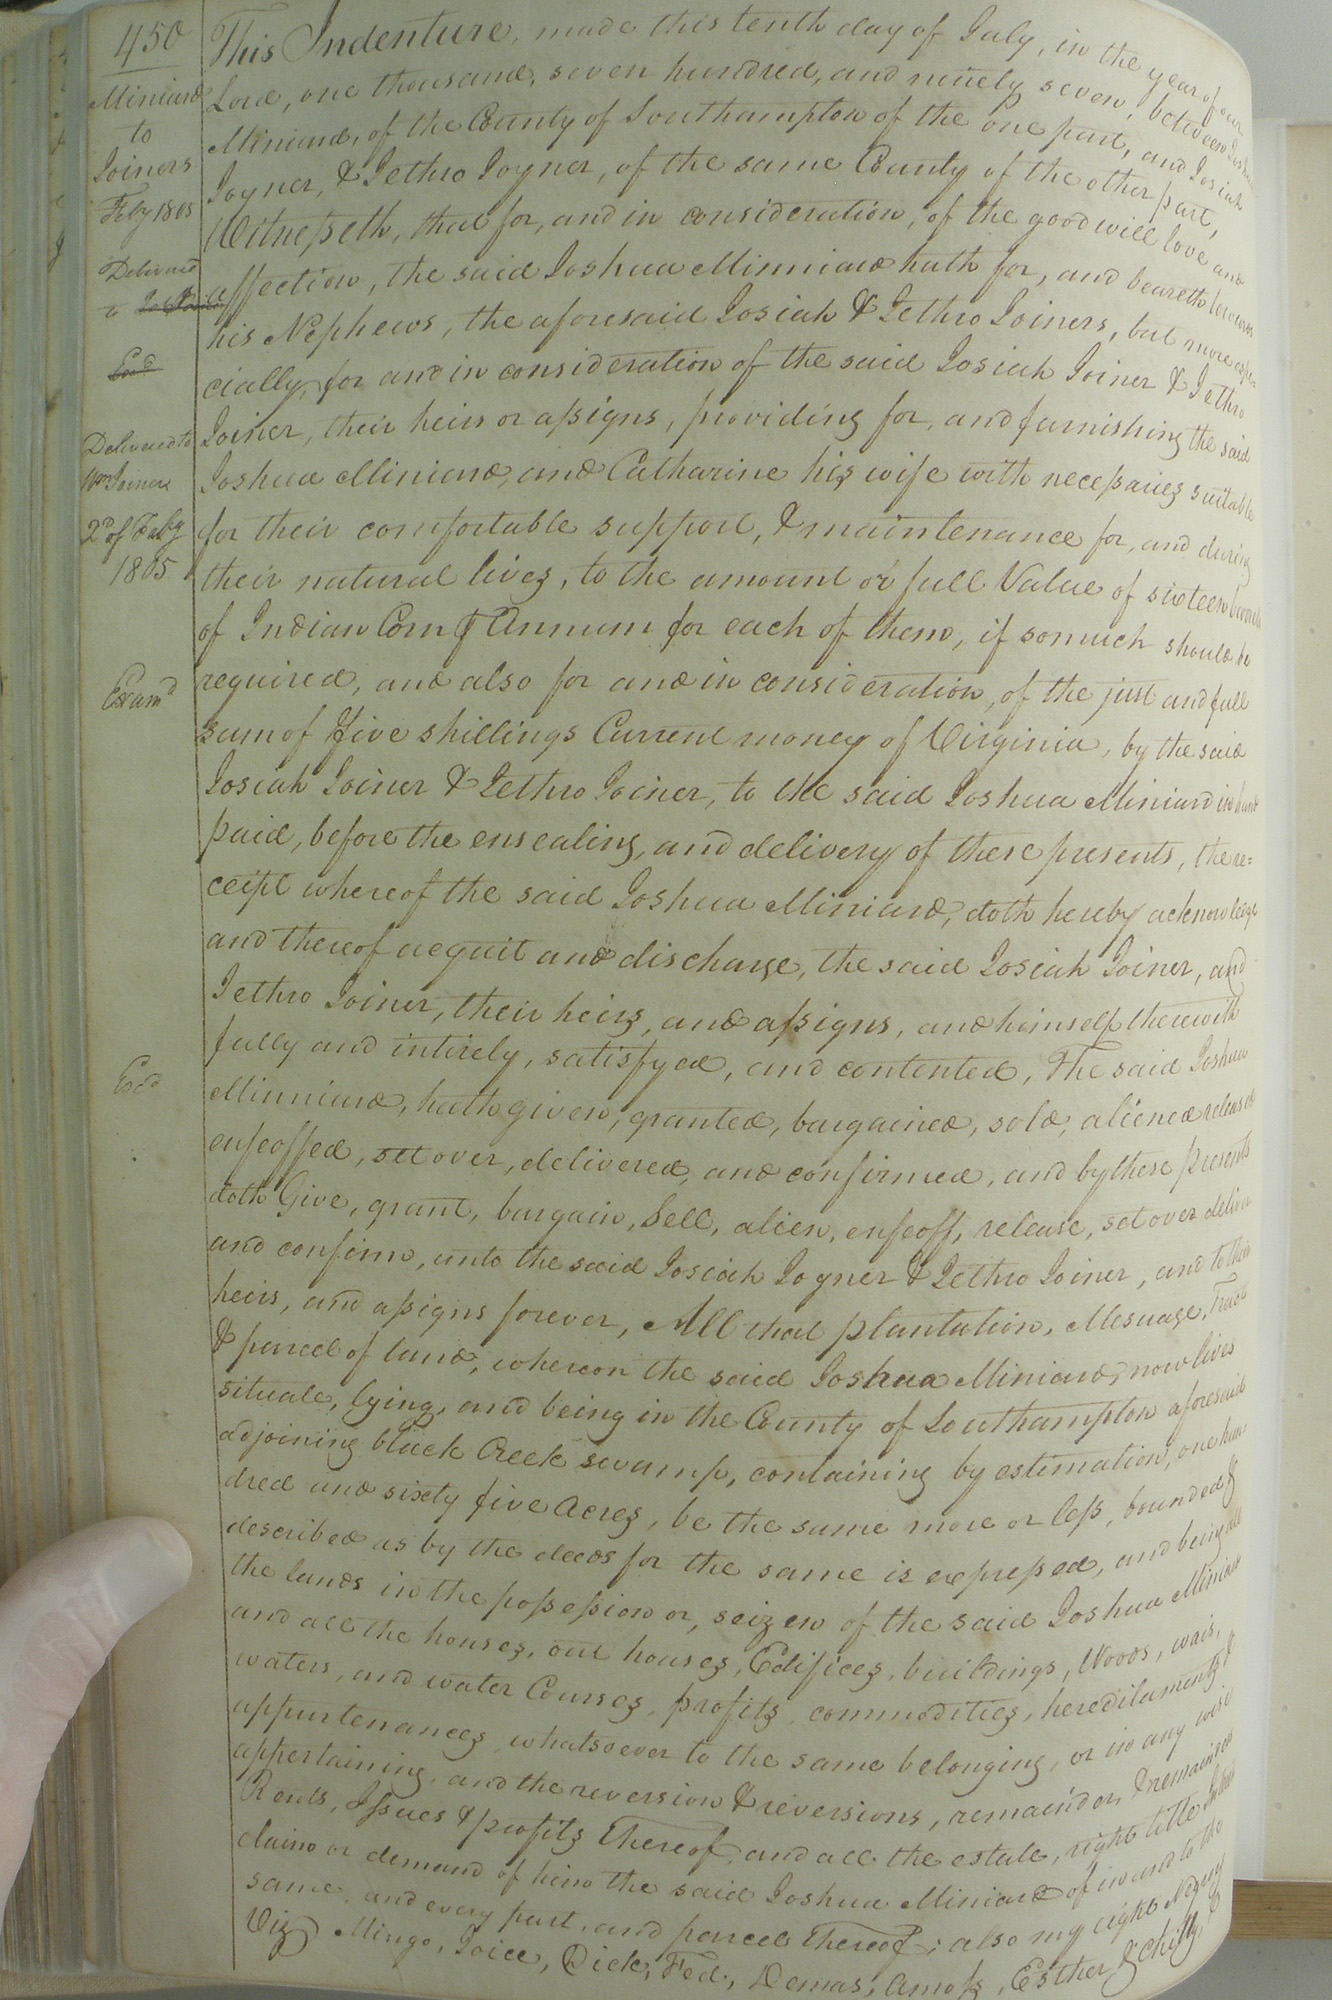 450
Miniard
to
Joiners
Feby 1805
Delivered
to
Exd
Delivered to
Wm Joiner
2d of Feby
1805
Examd
Exd
This Indenture, made this tenth day of July, in the year of our
Lord, one thousand, seven hundred, and ninety seven, between Joshua
Miniard, of the County of Southampton of the one part, and Josiah
Joyner, & Jethro Joyner, of the same County of the other part,
Witnesseth, that for, and in consideration, of the good will love and
affection, the said Joshua Minniard hath for, and beareth towards
his Nephews, the aforesaid Josiah & Jethro Joiners, but more espe=
cially, for and in consideration of the said Josiah Joiner & Jethro
Joiner, their heirs or assigns, providing for, and furnishing the said
Joshua Miniard, and Catharine his wife with necessaries suitable
for their comfortable support, & maintenance for, and during
their natural lives, to the amount or full Value of sixteen barrels
of Indian Corn ⅌ Annum for each of them, if so much should be
required, and also for and in consideration, of the just and full
sum of five shillings Current money of Virginia, by the said
Josiah Joiner & Jethro Joiner, to the said Joshua Miniard in hand
paid, before the ensealing, and delivery of these presents, the re=
ceipt whereof the said Joshua Miniard, doth hereby acknowledge
and thereof acquit and discharge, the said Josiah Joiner, and
Jethro Joiner, their heirs, and assigns, and himself therewith
fully and intirely, satisfyed, and contented, The said Joshua
Minniard, hath given, granted, bargained, sold, aliened released
enfeoffed, set over, delivered, and confirmed, and by these presents
doth Give, grant, bargain, Sell, alien, enfeoff, release, set over deliver
and confirm, unto the said Josiah Joyner & Jethro Joiner, and to their
heirs, and assigns forever, All that plantation, Mesuage, Tract
& parcel of land, whereon the said Joshua Miniard, now lives
situate, lying, and being in the County of Southampton aforesaid
adjoining black Creek swamp, containing by estimation, one hun
dred and sixty five Acres, be the same more or less, bounded &
described as by the deeds for the same is expressed, and being all
the lands in the possession or, seizen of the said Joshua Miniard
and all the houses, out houses, Edifices, buildings, Woods, wais,
waters, and water Courses, profits, commodities, hereditaments &
appurtenances whatsoever to the same belonging, or in any wise
appertaining, and the reversion & reversions, remainder, & remainders
Rents, Issues & profits thereof, and all the estate, right title Interest
claim or demand of him the said Joshua Miniard of in and to the
same, and every part, and parcel thereof; also my eight Negroes
Viz Mingo, Joice, Dick, Fed, Demas, Amoss, Esther &